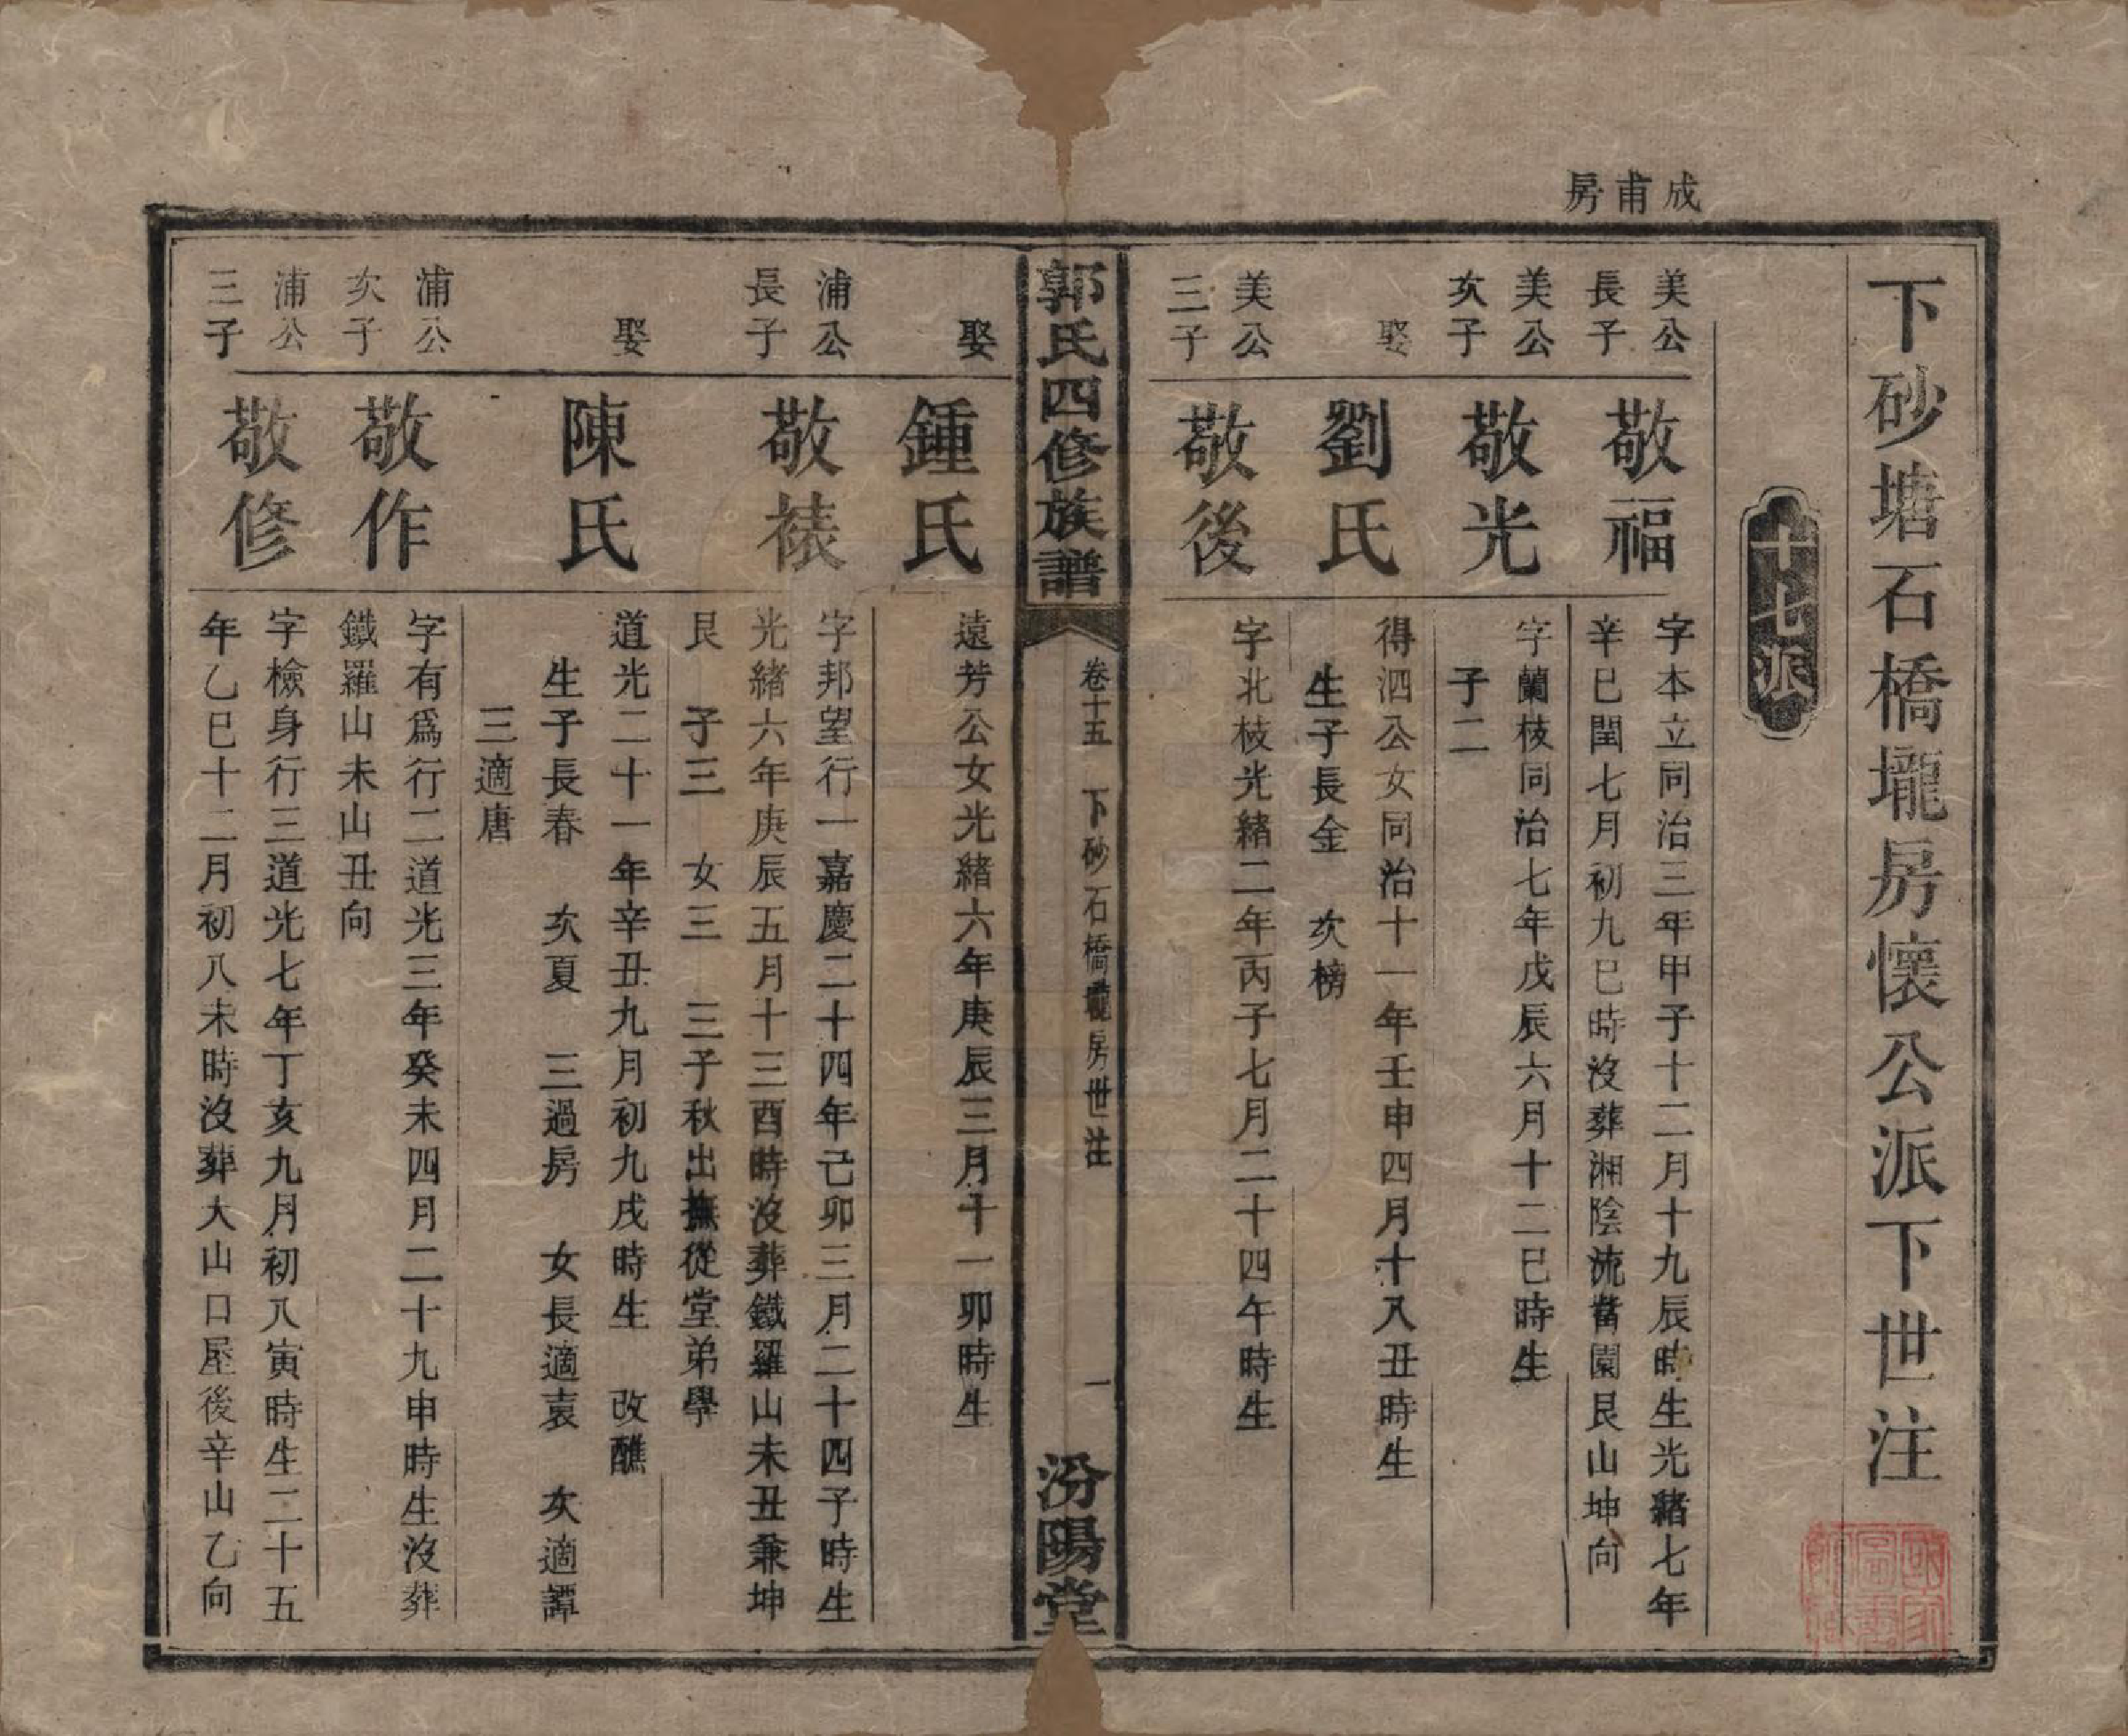 成甫房
下砂塘石橋壠房懷公派下世注
十七派
美公長子
敬福
字本立同治三年甲子十二月十九辰時生光緒七年
辛巳閏七月初九巳時沒葬湘陰流畬園艮山坤向
美公次子
敬光
字蘭枝同治七年戊辰六月十二巳時生
子二
娶
劉氏
得泗公女同治十一年壬申四月十八丑時生
生子長金 次榜
美公三子
敬後
字北枝光緒二年丙子七月二十四午時生
郭氏四修族譜
卷十五 下砂石橋壠房世注
一
汾陽堂
娶
鍾氏
遠芳公女光緒六年庚辰三月十一卯時生
浦公長子
敬裱
字邦望行一嘉慶二十四年己卯三月二十四子時生
光緒六年庚辰五月十三酉時沒葬鐵羅山未丑兼坤
艮 子三 女三 三子秋出撫從堂弟學
娶
陳氏
道光二十一年辛丑九月初九戌時生 改醮
生子長春 次夏 三過房 女長適袁 次適譚
三適唐
浦公次子
敬作
字有爲行二道光三年癸未四月二十九申時生沒葬
鐵羅山未山丑向
浦公三子
敬修
字檢身行三道光七年丁亥九月初八寅時生二十五
年乙巳十二月初八未時沒葬大山口屋後辛山乙向